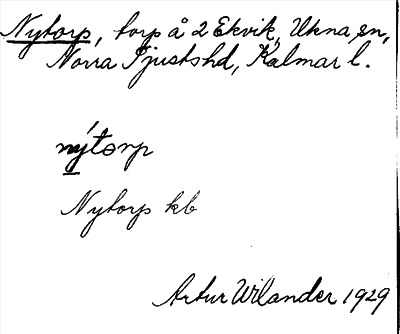 Nytorp, torp å 2 Ekvik, Ukna sn,
Norra Tjusts hd, Kalmar l.
nýtorp
Nytorp kb
Artur Wilander 1929